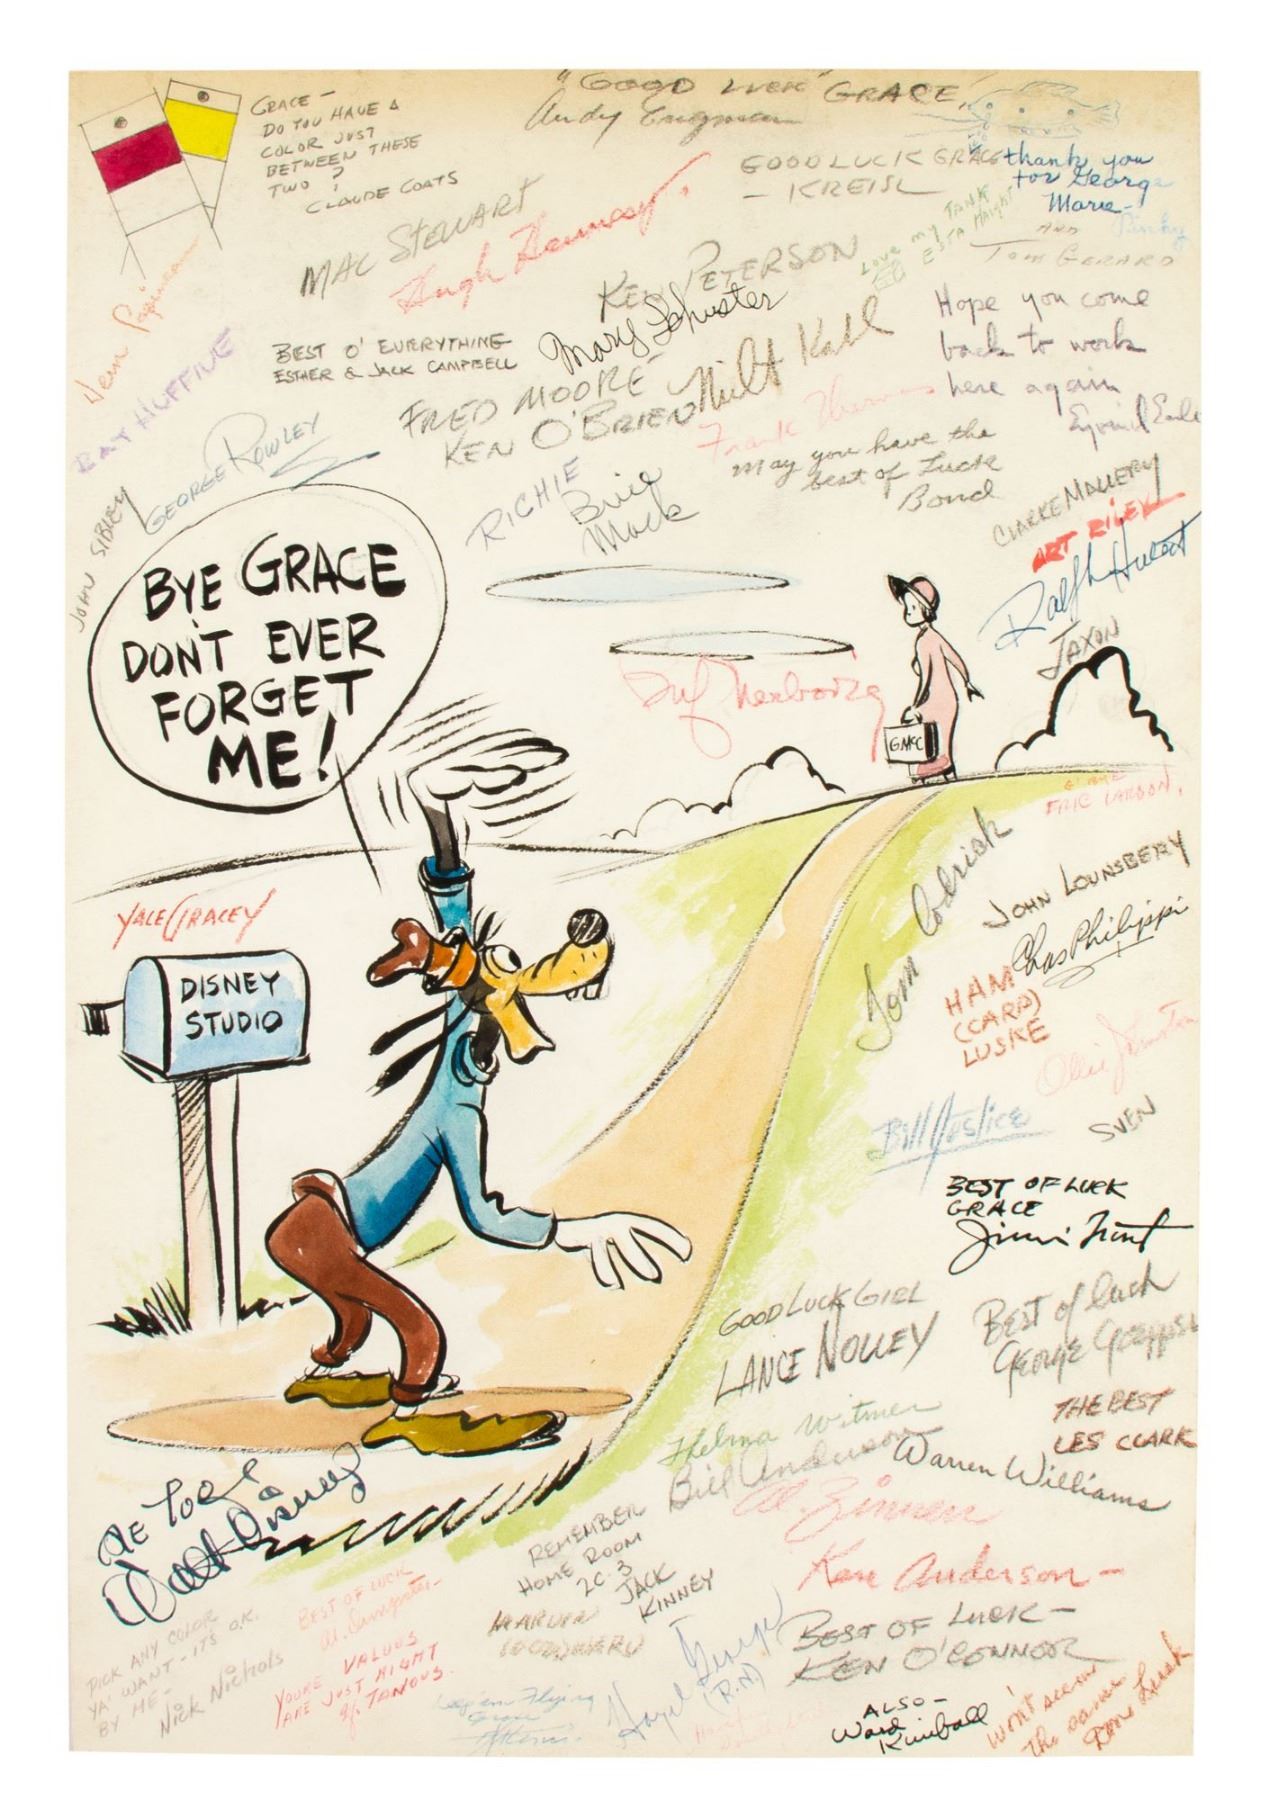 "GOOD LUCK" GRACE,
Andy Engman
GRACE -
DO YOU HAVE A
COLOR JUST
BETWEEN THESE
TWO ?
CLAUDE COATS
GOOD LUCK GRACE
- KREISL
thank you
for George
Marie -
AND
TOM GERARD
Love my TANK
ESTA HAIGHT
MAC STEWART
Hugh Hennesy.
KEN PETERSON
Mary Schuster
BEST O' EVERYTHING
ESTHER & JACK CAMPBELL
RAY HUFFINE
GEORGE ROWLEY
JOHN SIBLEY
FRED MOORE
KEN O'BRIEN
Milt Kahl
Frank Thomas
Hope you come
back to work
here again
May you have the
best of Luck
Bond
RICHIE
Bill
Mack
CLARKE MALLERY
ART RILEY
Ralph Hulett
JAXON
BYE GRACE
DON'T EVER
FORGET
ME!
GMcC
ERIC LARSON,
YALE GRACEY
DISNEY
STUDIO
Tom Codrick
JOHN LOUNSBERY
Chas Philippi
HAM
(CARD)
LUSKE
Ollie Johnston
Bill Justice
SVEN
BEST OF LUCK
GRACE
GOOD LUCK GIRL
LANCE NOLLEY
Best of luck
George
THE BEST
LES CLARK
Thelma Witmer
Bill Anderson
Warren Williams
Al. Zinnen
Ken Anderson -
Walt Disney
REMEMBER
HOME ROOM
2C.3
JACK
KINNEY
BEST OF LUCK -
KEN O'CONNOR
PICK ANY COLOR
YA' WANT - IT'S O.K.
BY ME -
Nick Nichols
BEST OF LUCK
YOURE VALUES
ARE JUST RIGHT
MARVIN
WOODWARD
Hazel George
(R.N)
Keep 'em Flying
Grace
ALSO -
Ward
Kimball
Won't seem
the same